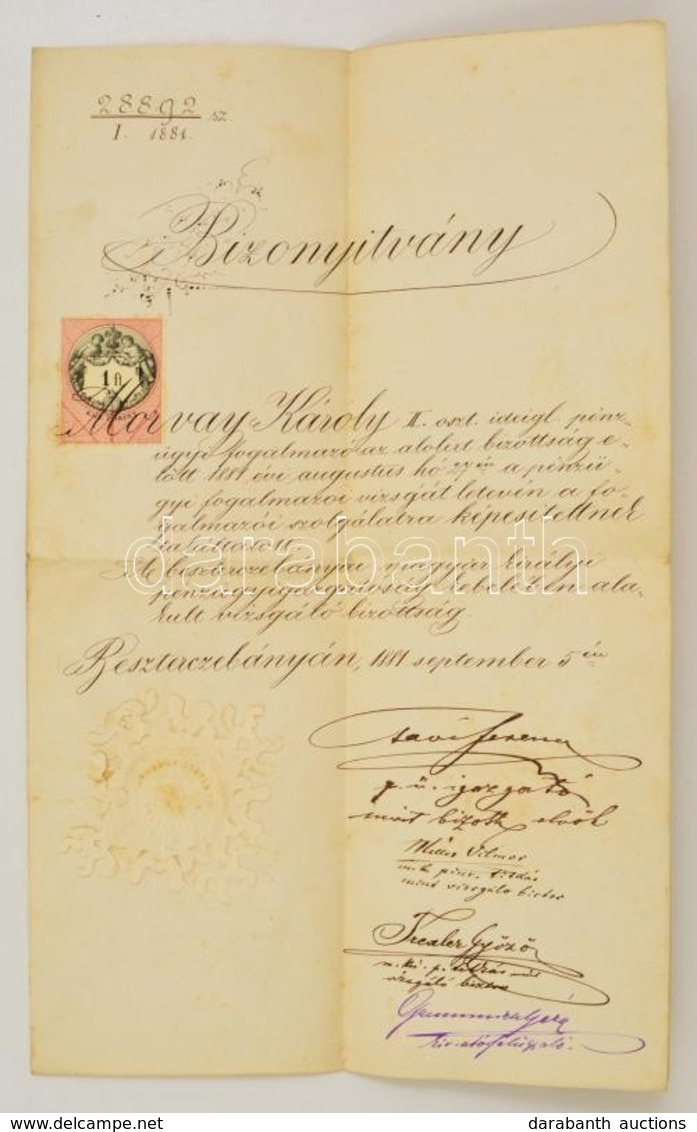 28892 sz.
I. 1881.
Bizonyitvány
1 fl
Morvay Károly II. oszt. ideigl. pénz-
ügyi fogalmazó az alolirt bizottság e-
lőtt 1881 évi augusztus hó 27én a pénzü-
gyi fogalmazói vizsgát letevén a fo-
galmazói szolgálatra képesitettnek
találtatott.
A beszterczebányai magyar királyi
pénzügyigazgatóság kebelében ala-
kult vizsgáló bizottság.
darabanth
Beszterczebányán, 1881 september 5én
Ferencz
p. ü. igazgató
mint bizotts. elnök
Vilmos
m. k. pénz. titkár
mint vizsgáló biztos
Győző
m. kir. p. ü. titkár mint
vizsgáló biztos
Géza
www.darabanth.com
darabanth auctions